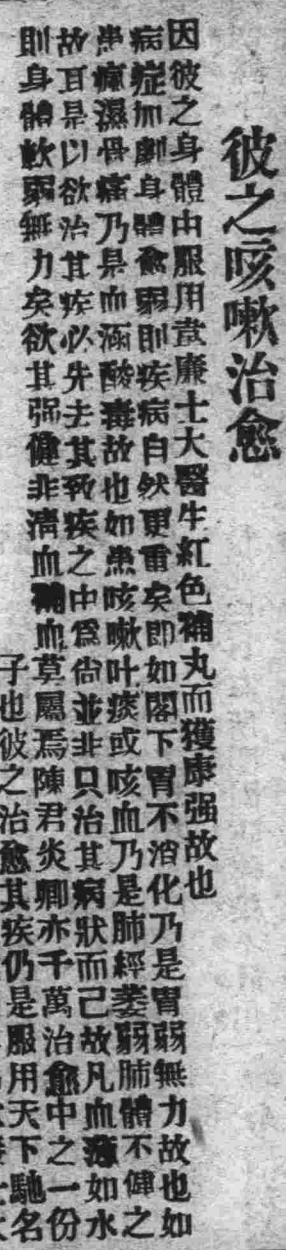 彼之咳嗽治愈
因彼之身體由服用韋廉士大醫生紅色補丸而獲康强故也
病症加劇身體愈弱則疾病自然更重矣即如閣下胃不消化乃是胃弱無力故也如
患瘋濕骨痛乃是血涵酸毒故也如患咳嗽吐痰或咳血乃是肺經萎弱肺體不健之
故耳是以欲治其疾必先去其致疾之由爲尙並非只治其病狀而已故凡血薄如水
則身體軟弱無力矣欲其强健非清血補血莫屬焉陳君炎卿亦千萬治愈中之一份
子也彼之治愈其疾仍是服用天下馳名